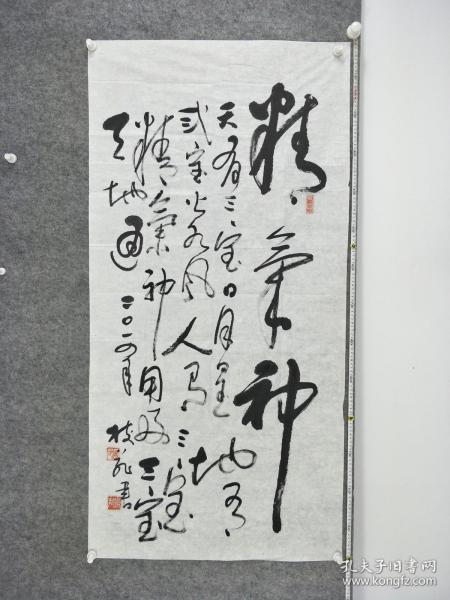 精氣神
天有三宝日月星地有
弎宝火水风人有三宝
精氣神用好三宝
天地通 二〇一四年 書
孔夫子旧书网
www.kongfz.com